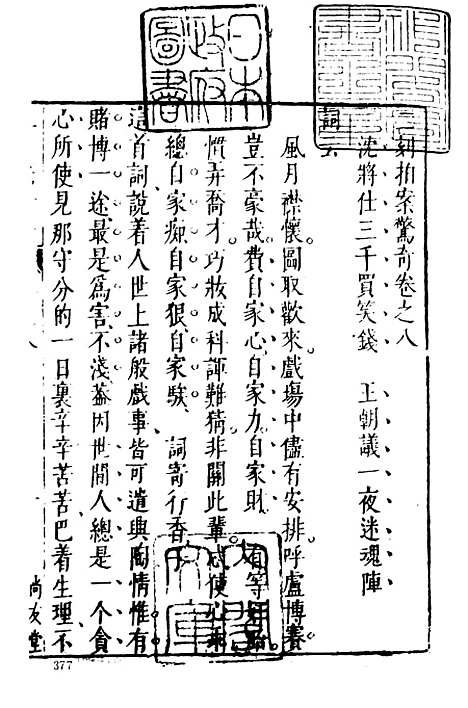 刻拍案驚奇卷之八
沈將仕三千買笑錢 王朝議一夜迷魂陣
詞云
風月襟懷圖取歡來戲場中儘有安排呼盧博賽
豈不豪哉費自家心自家力自家財 有等奸胎
慣弄喬才巧妝成科諢難猜非關此輩忒使心乖
總自家痴自家狠自家騃 詞寄行香子
這首詞說着人世上諸般戲事皆可遣興陶情惟有
賭博一途最是為害不淺蓋因世間人總是一個貪
心所使見那守分的一日裏辛辛苦苦巴着生理不
尚友堂
日本政府圖書
內閣文庫
377